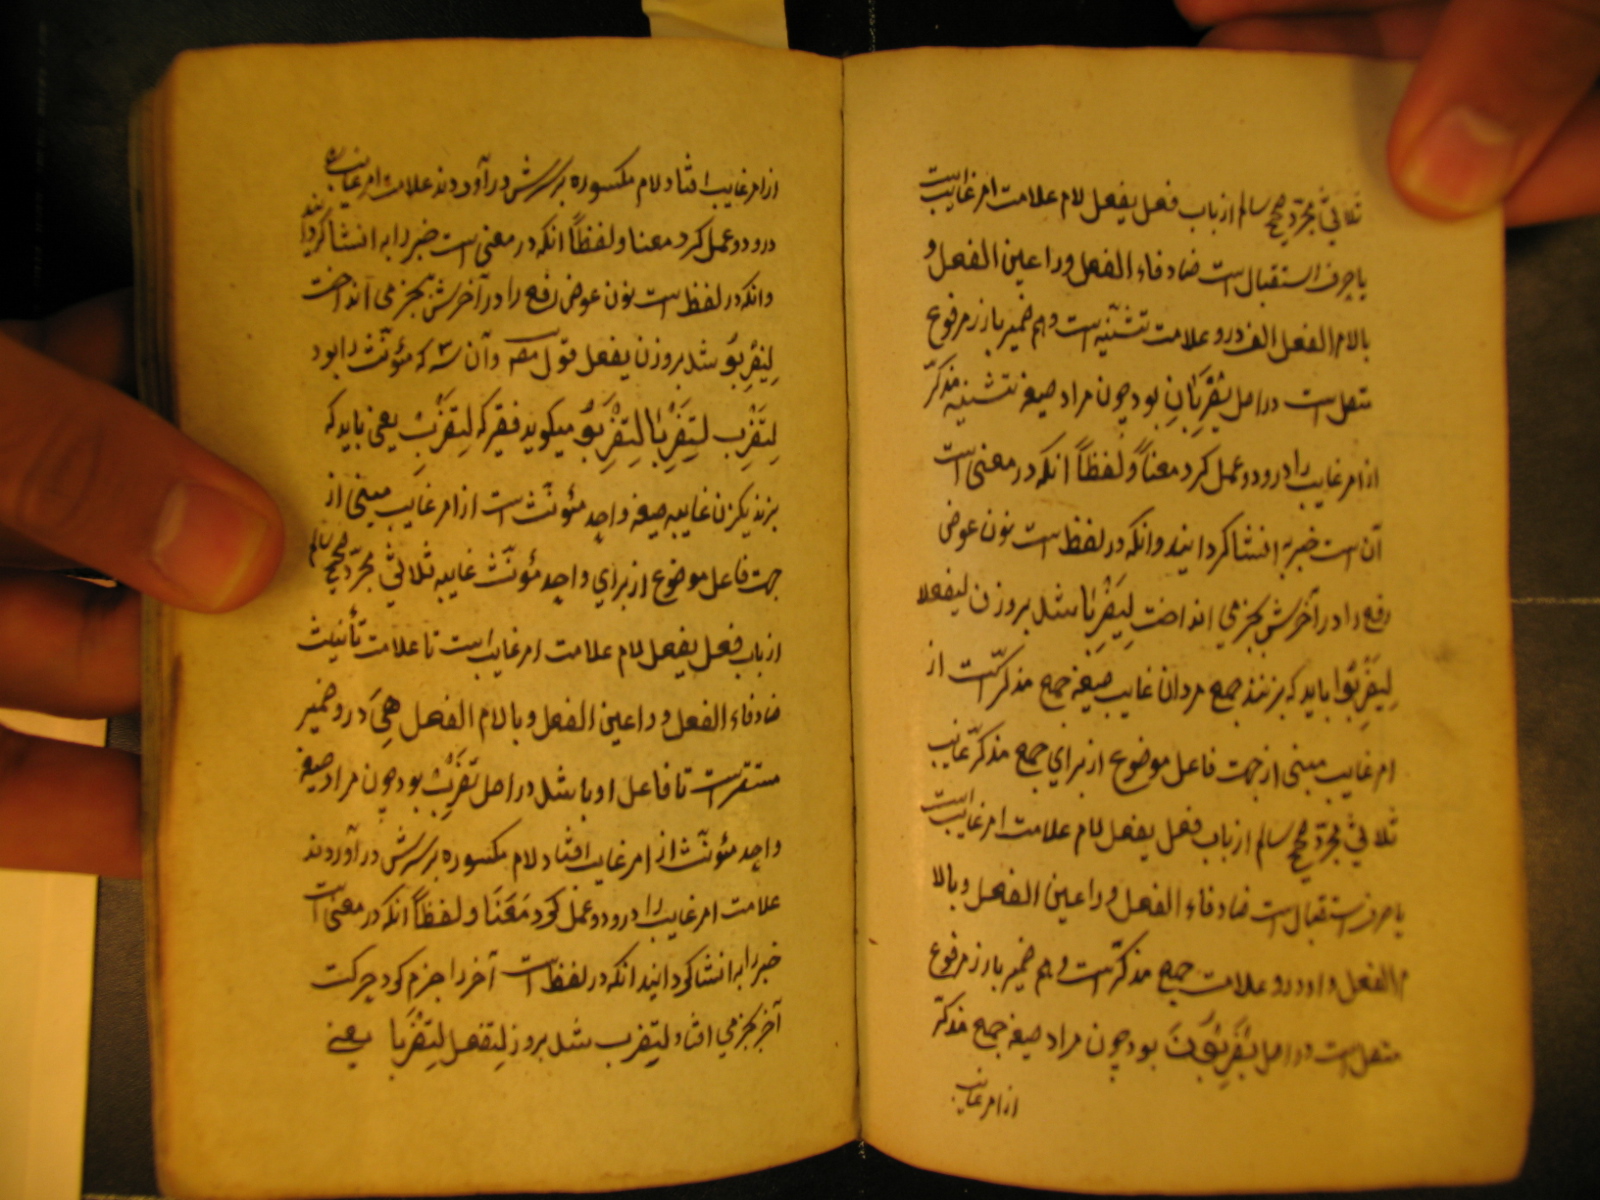 ثلاثی مجرّد صحیح سالم از باب فعل یفعل لام علامت امر غایبست
یا حرف استقبال است ضاد فاء الفعل و را عین الفعل و
با لام الفعل الف درو علامت تثنیه است و هم ضمیر بارز مرفوع
متصل است در اصل یَضْرِبَانِ بود چون مراد صیغه تثنیه مذکّر
از امر غایب را درو دو عمل کرد معناً و لفظاً انکه در معنی است
آن است خبر به انشا کردانید و انکه در لفظ است نون عوض
رفع را در آخرش بجزمی انداخت لِیَضْرِبَا شد بر وزن لیفعلا
لِیَضْرِبُوا باید که بزنند جمع مردان غایب صیغه جمع مذکّرست از
امر غایب مبنی از جهت فاعل موضوع از برای جمع مذکّر غایب
ثلاثی مجرّد صحیح سالم از باب فعل یفعل لام علامت امر غایب است
یا حرف استقبال است ضاد فاء الفعل و را عین الفعل و با لا
م الفعل واو درو علامت جمع مذکّرست و هم ضمیر بارز مرفوع
متصل است در اصل یَضْرِبُونَ بود چون مراد صیغه جمع مذکّر
از امر غایب
از امر غایب افتاد لام مکسوره بر سرش در آوردند علامت امر غایب
درو دو عمل کرد معنا و لفظاً انکه در معنی است خبر را به انشا کردانید
و انکه در لفظ است نون عوض رفع را در آخرش بجزمی انداخت
لِیَضْرِبُو شد بر وزن یفعل قول مصه و آن سه که مؤنّث را بود
لِتَضْرِب لِتَضْرِبَا لِتَضْرِبُو میکوید فقیر که لِتَضْرِبْ یعنی باید که
بزند یکزن غایبه صیغه واحد مؤنّث است از امر غایب مبنی از
جهت فاعل موضوع از برای واحد مؤنّث غایبه ثلاثی مجرّد صحیح سالم
از باب فعل یفعل لام علامت امر غایب است تا علامت تأنیث
ضاد فاء الفعل و را عین الفعل و با لام الفعل هِیَ درو ضمیر
مستترست تا فاعل او باشد در اصل تَضْرِبُ بود چون مراد صیغه
واحد مؤنّث از امر غایب افتاد لام مکسوره بر سرش در آوردند
علامت امر غایب را درو دو عمل کرد مَعْنَا و لفظاً انکه در معنی است
خبر را به انشا کردانید انکه در لفظ است آخر را جزم کرد حرکت
آخر بجزمی افتاد لِتَضْرِب شد بر وزن لِتفعل لِتَضْرِبَا یعنی